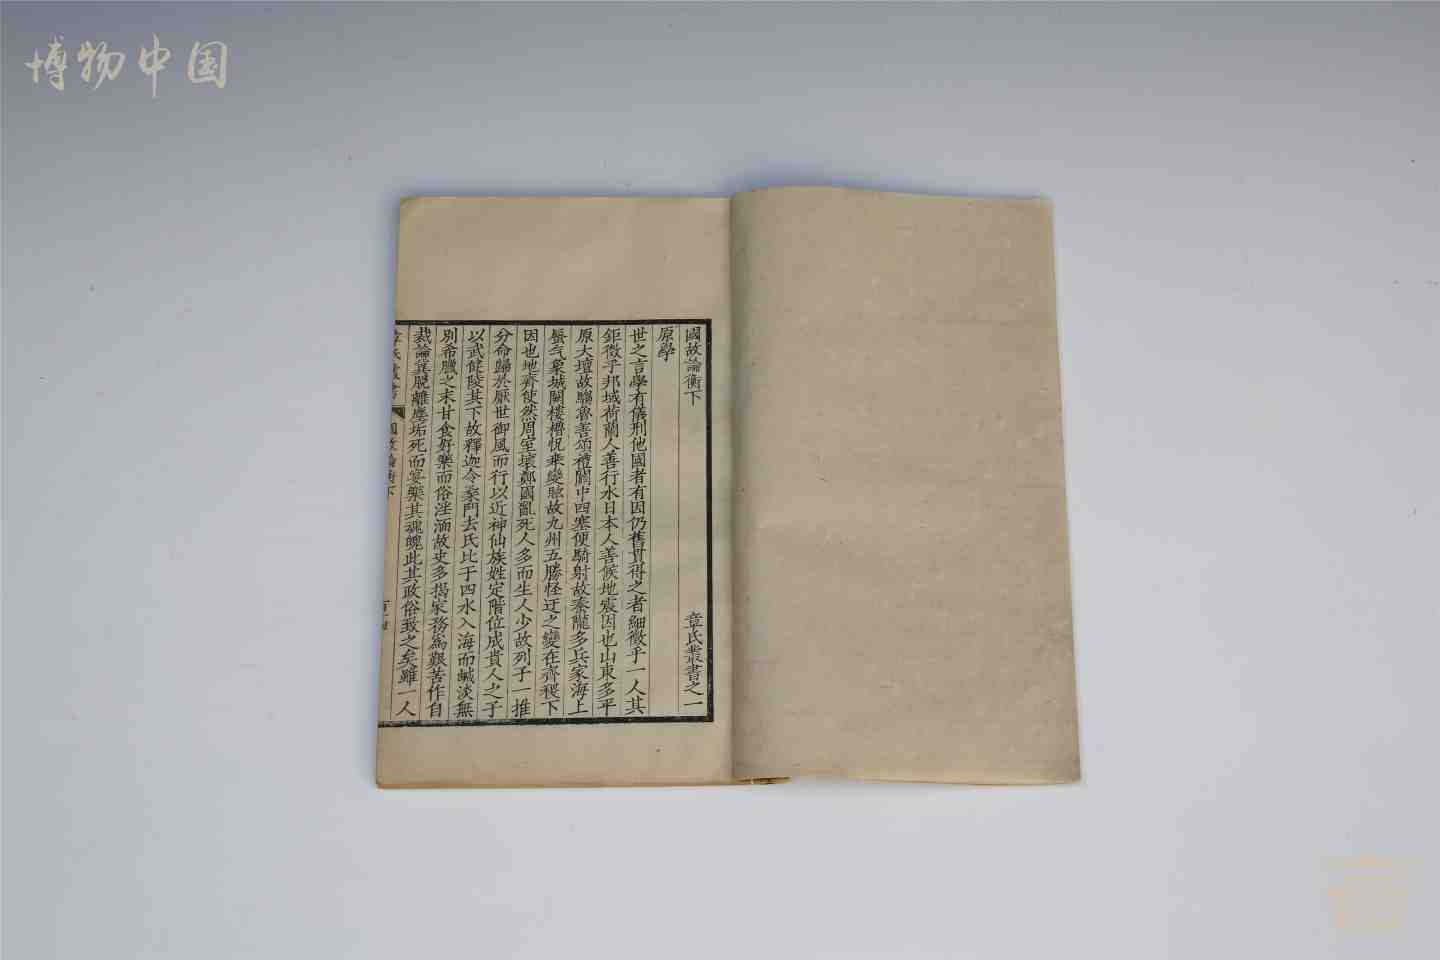 博物中国
國故論衡下 章氏叢書之一
原學
世之言學有儀刑他國者有因仍舊貫得之者細徵乎一人其
鉅徵乎邦域荷蘭人善行水日本人善候地震因也山東多平
原大壇故騶魯善頌禮關中四塞便騎射故秦隴多兵家海上
蜃气象城闕樓櫓怳乖變眩故九州五勝怪迂之變在齊稷下
因也地齊使然周室壞鄭國亂死人多而生人少故列子一推
分命歸於厭世御風而行以近神仙族姓定階位成貴人之子
以武健陵其下故釋迦令桑門去氏比于四水入海而鹹淡無
別希臘之末甘食好樂而俗淫湎故史多揭家務爲艱苦作自
裁論冀脫離塵垢死而宴樂其魂魄此其政俗致之矣雖一人
章氏叢書 國故論衡下